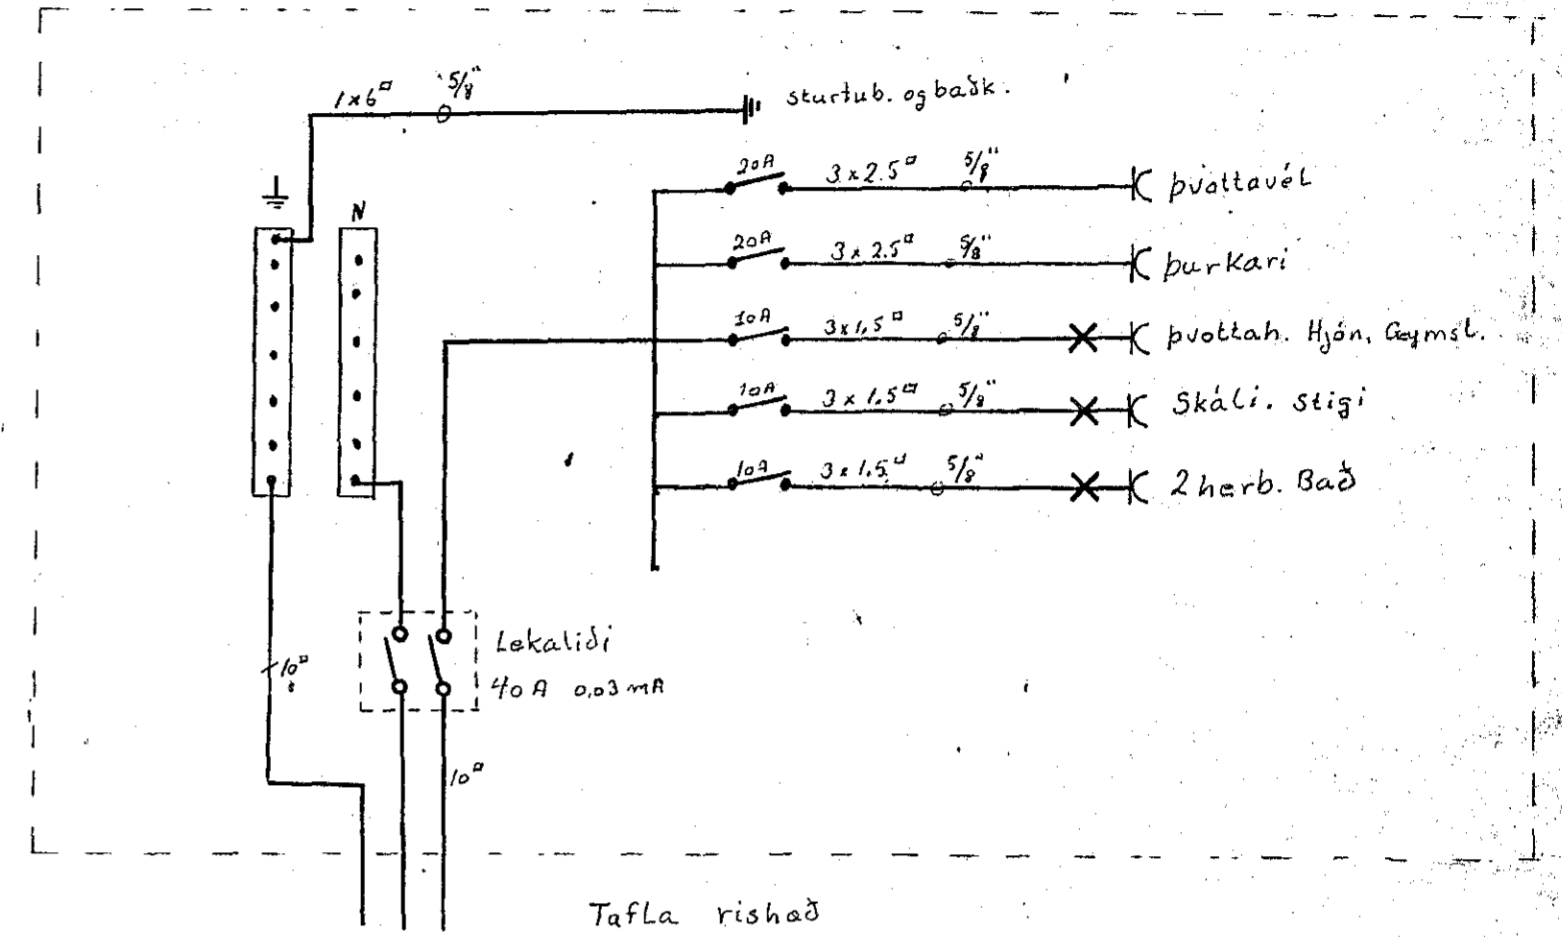 1x6▫ 5/8" sturtub. og baðk.
20A 3x2.5▫ 5/8" þvottavél
N
20A 3x2.5▫ 5/8" þurkari
10A 3x1,5▫ 5/8" þvottah. Hjón, Geymsl.
10A 3x1.5▫ 5/8" Skáli. stigi
10A 3x1.5▫ 5/8" 2 herb. Bað
Lekaliði
40A 0,03mA
10▫
10▫
Tafla rishað